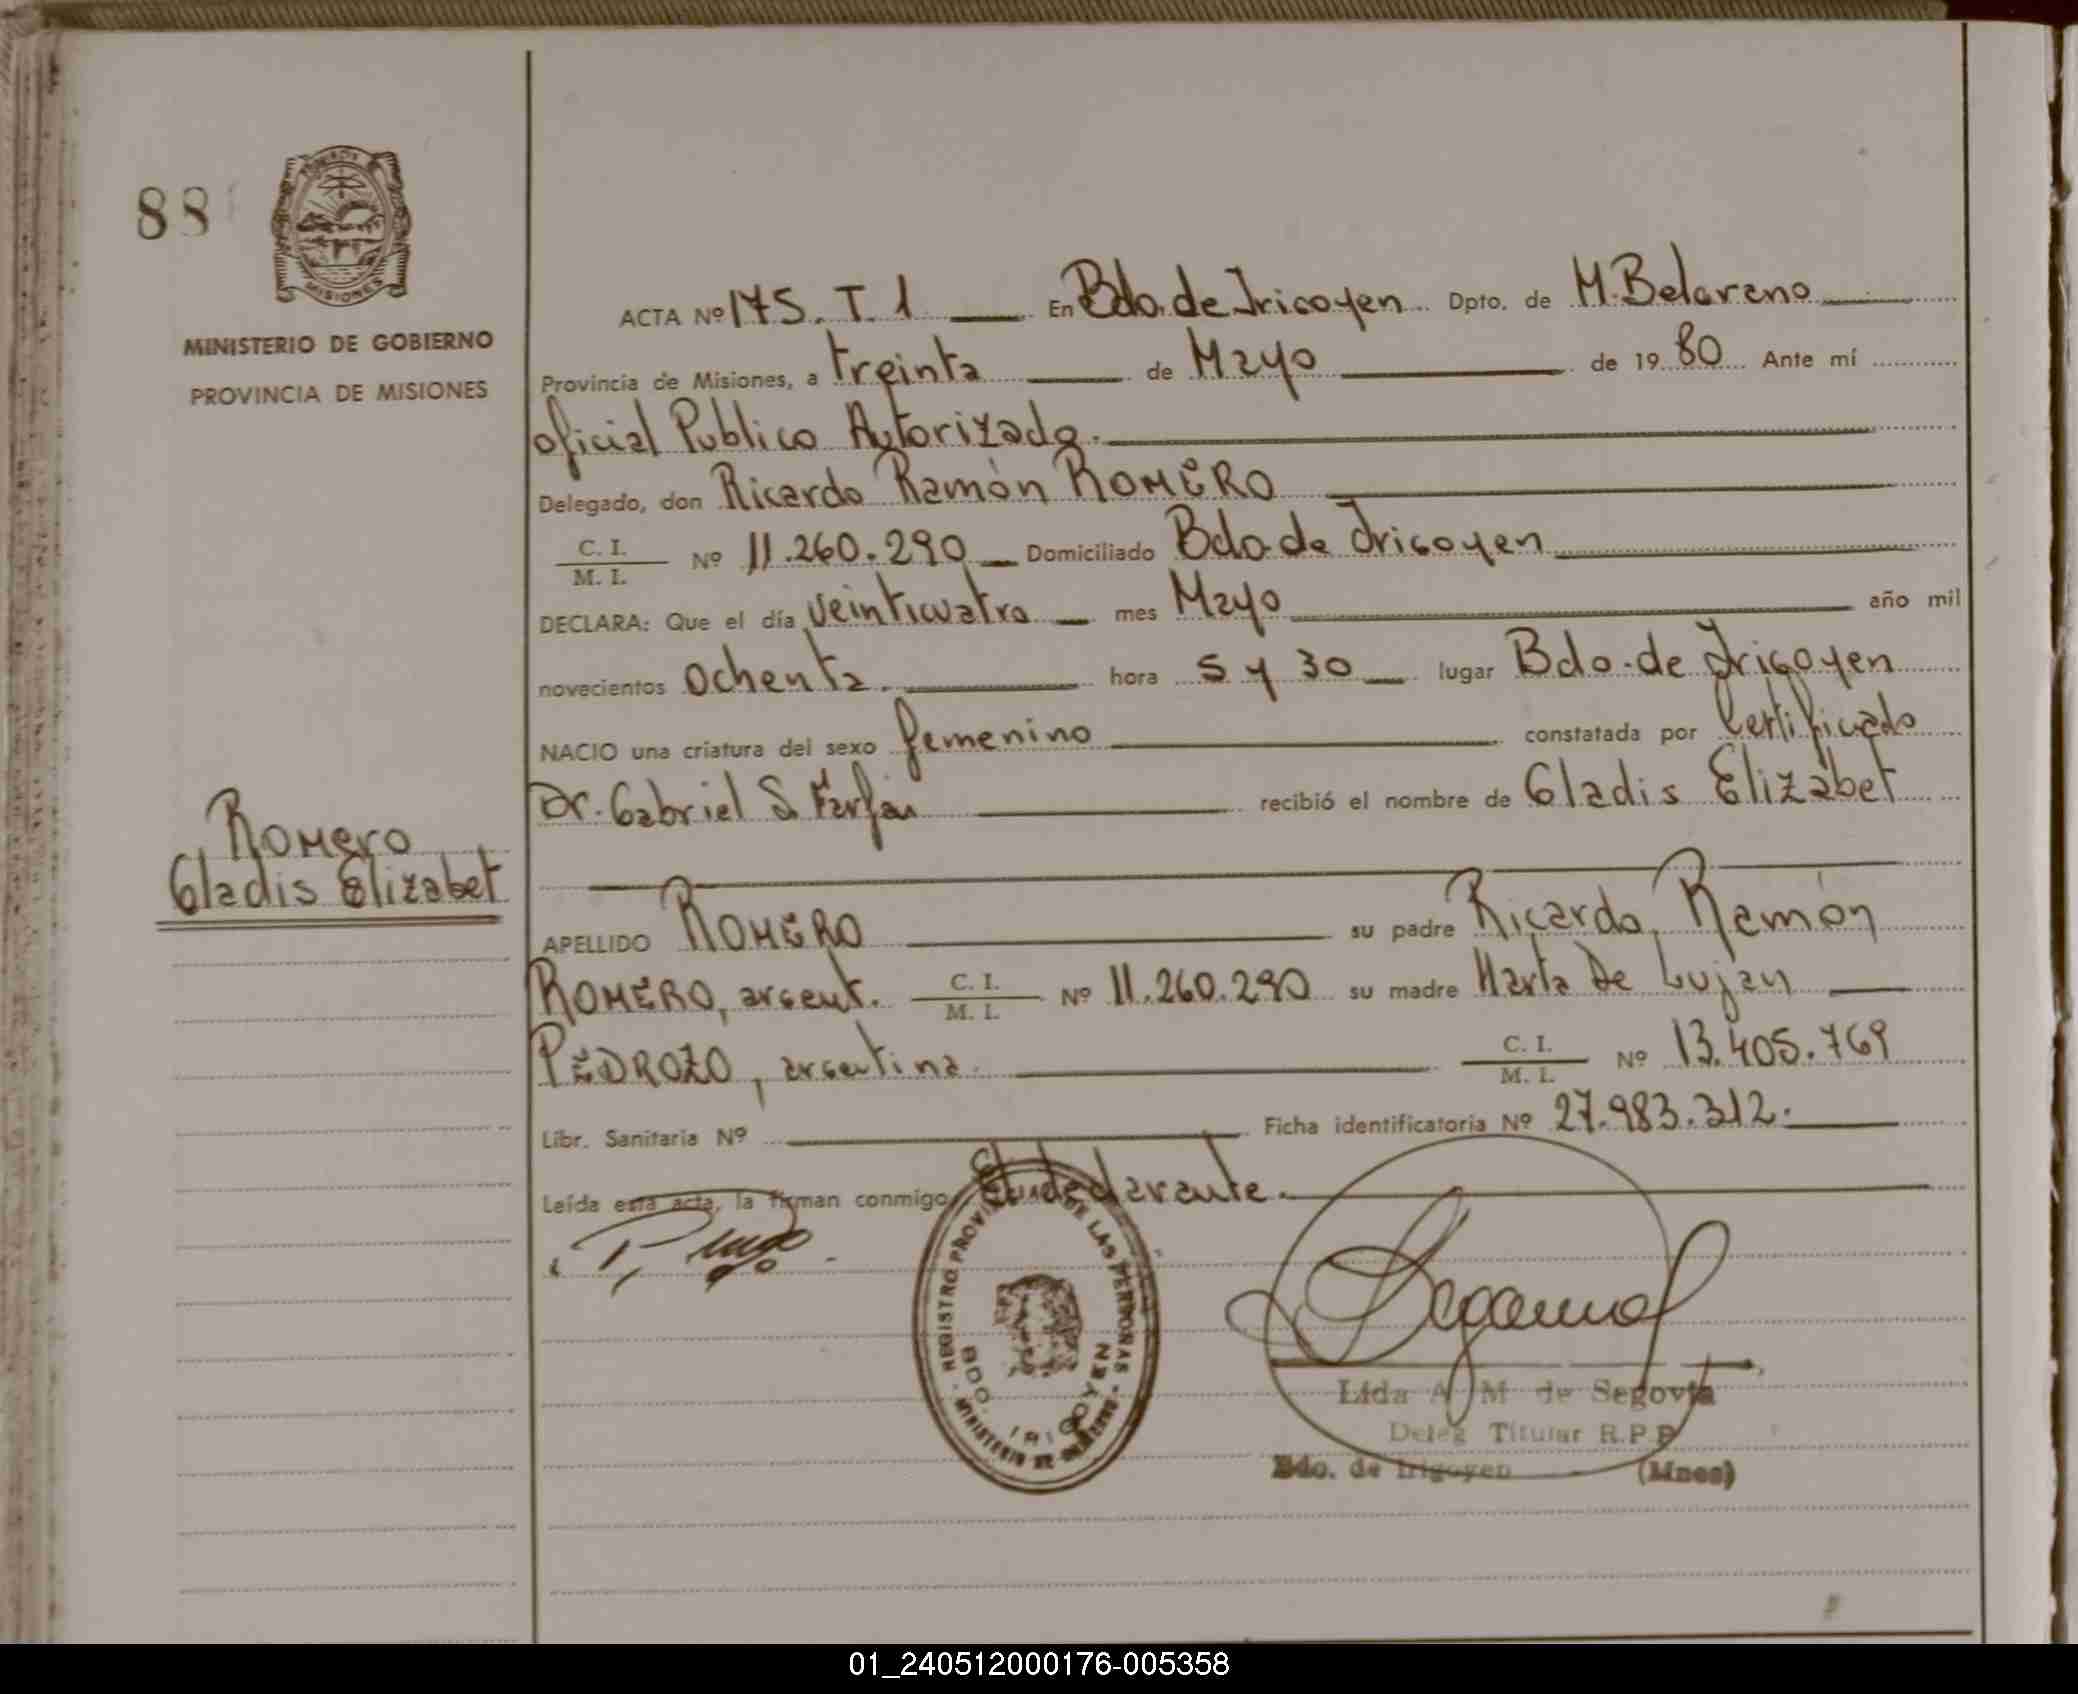 88
MISIONES
MINISTERIO DE GOBIERNO
PROVINCIA DE MISIONES
Romero
Gladis Elizabet
ACTA Nº 175. T. 1 En Bdo. de Irigoyen Dpto. de M. Belgrano
Provincia de Misiones, a treinta de Mayo de 1980 Ante mí
oficial Publico Autorizado.
Delegado, don Ricardo Ramón ROMERO
C. I. / M. I. Nº 11.260.290 Domiciliado Bdo. de Irigoyen
DECLARA: Que el día veinticuatro mes Mayo año mil
novecientos ochenta. hora 5 y 30 lugar Bdo. de Irigoyen
NACIO una criatura del sexo femenino constatada por Certificado
Dr. Gabriel S. Farfan recibió el nombre de Gladis Elizabet
APELLIDO ROMERO su padre Ricardo, Ramón
ROMERO, argent. C. I. / M. I. Nº 11.260.290 su madre Marta De Lujan
PEDROZO, argentina. C. I. / M. I. Nº 13.405.769
Libr. Sanitaria Nº Ficha identificatoria Nº 27.983.312.
Leída esta acta, la firman conmigo, el declarante.
REGISTRO PROVINCIAL DE LAS PERSONAS
MINISTERIO DE GOBIERNO
BDO. IRIGOYEN
Lida A. M de Segovia
Deleg Titular R.P.P
Bdo. de Irigoyen (Mnes)
01_240512000176-005358